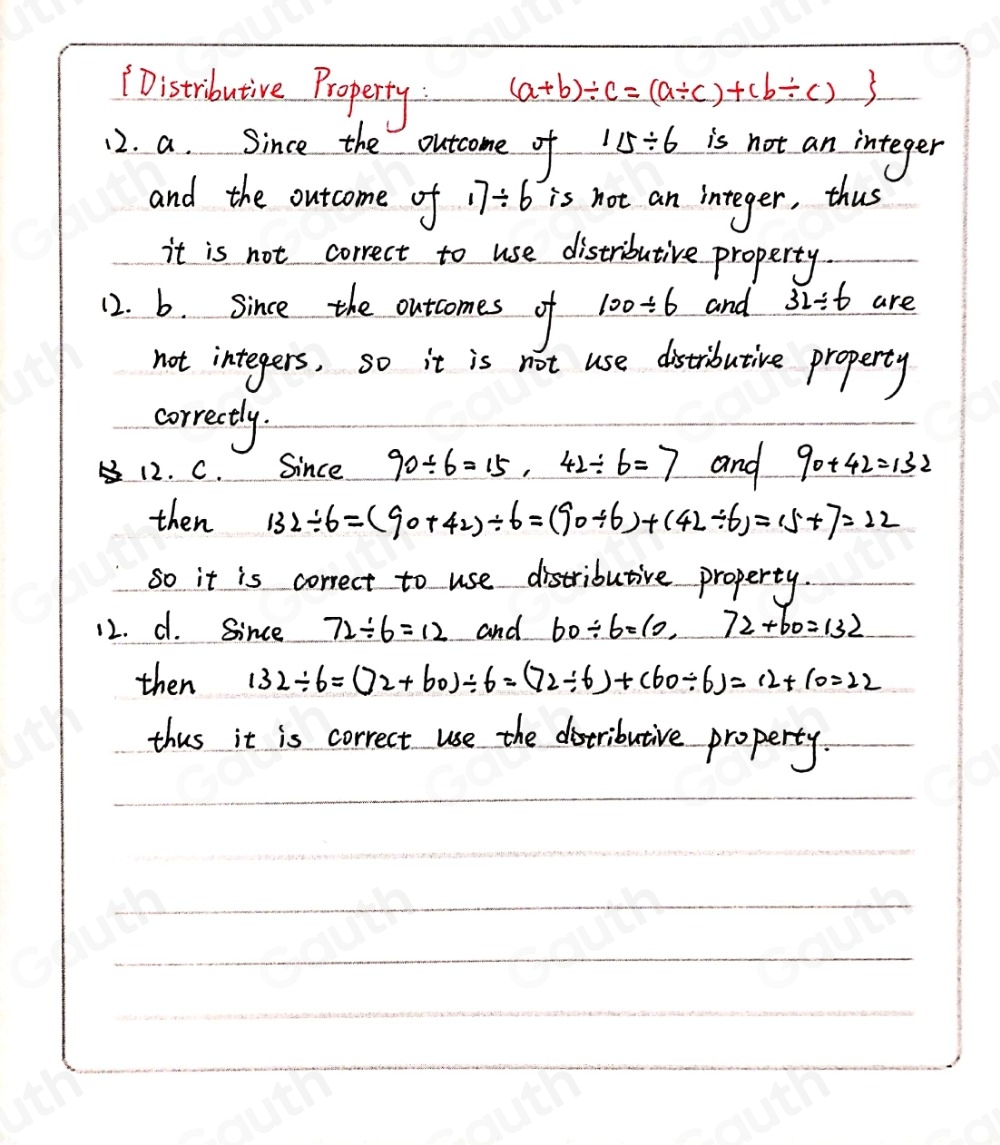 {Distributive Property: (a+b)÷c=(a÷c)+(b÷c) }
12. a. Since the outcome of 115÷6 is not an integer
and the outcome of 17÷6 is not an integer, thus
it is not correct to use distributive property.
12. b. Since the outcomes of 100÷6 and 32÷6 are
not integers, so it is not use distributive property
correctly.
12. c. Since 90÷6=15, 42÷6=7 and 90+42=132
then 132÷6=(90+42)÷6=(90÷6)+(42÷6)=15+7=22
so it is correct to use distributive property.
12. d. Since 72÷6=12 and 60÷6=10, 72+60=132
then 132÷6=(72+60)÷6=(72÷6)+(60÷6)=12+10=22
thus it is correct use the distributive property.